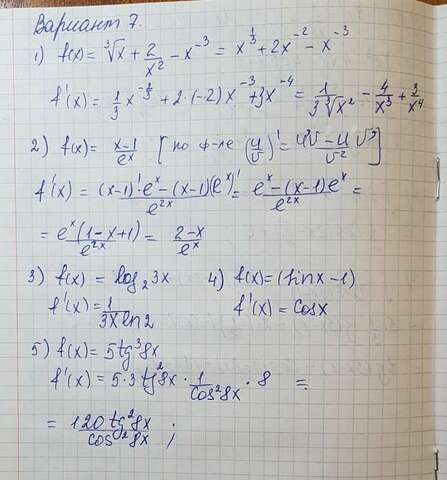 Вариант 7.
1) f(x) = ∛x + 2/x² − x⁻³ = x^(1/3) + 2x⁻² − x⁻³
f'(x) = 1/3 x^(−2/3) + 2·(−2)x⁻³ + 3x⁻⁴ = 1/(3∛x²) − 4/x³ + 3/x⁴
2) f(x) = (x−1)/eˣ [по ф-ле (u/v)' = (u'v − uv')/v²]
f'(x) = ((x−1)'·eˣ − (x−1)(eˣ)')/e²ˣ = (eˣ − (x−1)eˣ)/e²ˣ =
= eˣ(1−x+1)/e²ˣ = (2−x)/eˣ
3) f(x) = log₂3x 4) f(x) = (sinx − 1)
f'(x) = 1/(3x ln2) f'(x) = cosx
5) f(x) = 5tg³8x
f'(x) = 5·3tg²8x · 1/cos²8x · 8 =
= 120tg²8x/cos²8x ;